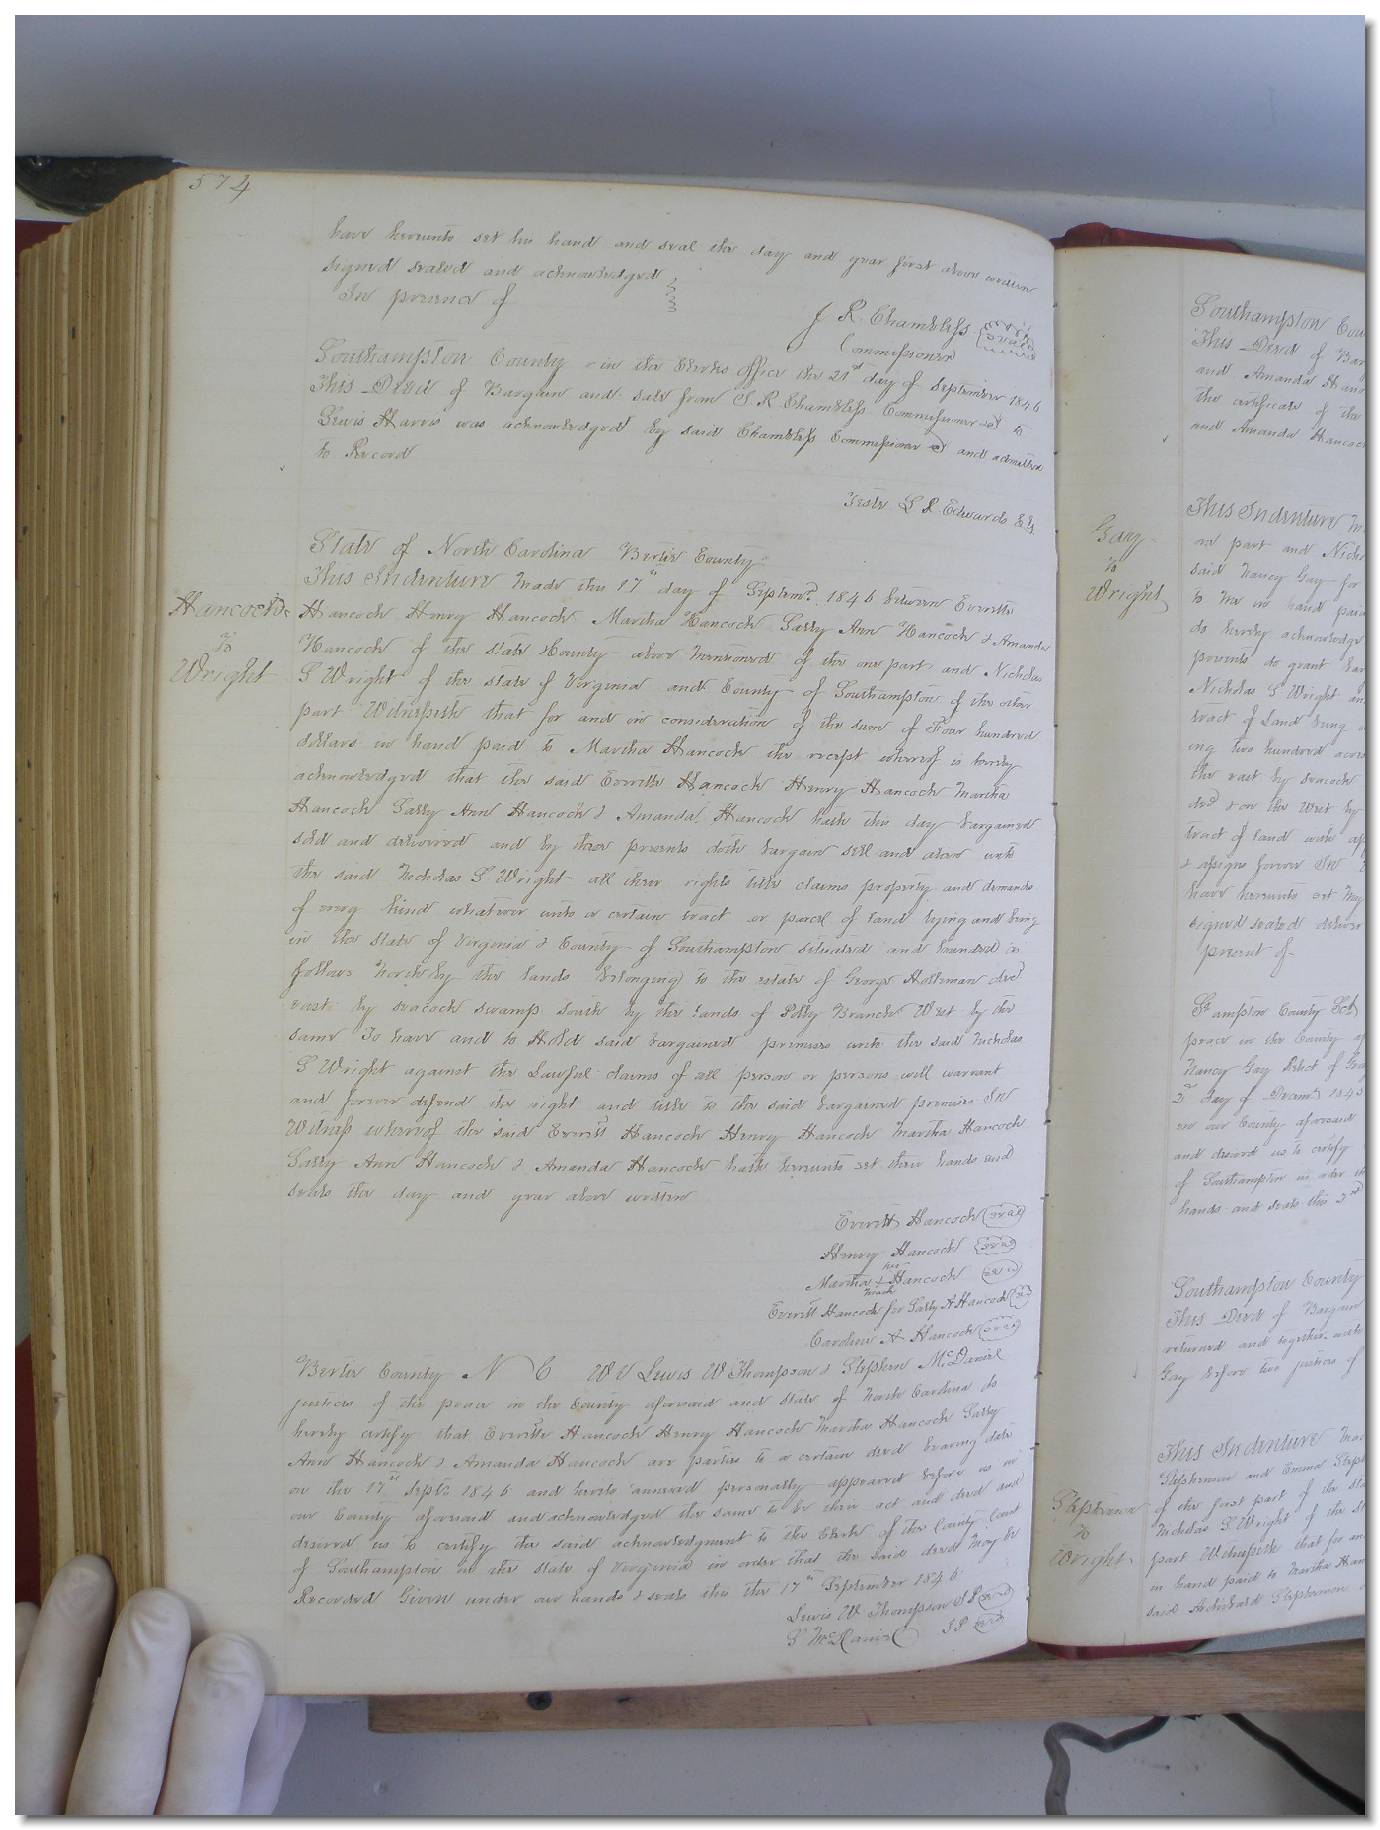 574
have hereunto set his hand and seal the day and year first above written
signed sealed and acknowledged
In presence of
J R Chambless seal
Commissioner
Southampton County - in the Clerks office the 21st day of September 1846
This Deed of Bargain and sale from J. R. Chambless Commissioner &c to
Lewis Harris was acknowledged by said Chambless Commissioner and admitted
to Record
Teste L R Edwards Clk
State of North Carolina Bertie County
This Indenture made this 17th day of Septemr. 1846 between Everitte
Hancocks
to
Wright
Hancock Henry Hancock Martha Hancock Sally Ann Hancock & Amanda
Hancock of the State & County above mentioned of the one part and Nicholas
S Wright of the state of Virginia and County of Southampton of the other
part Witnesseth that for and in consideration of the sum of Four hundred
dollars in hand paid to Martha Hancock the receipt whereof is hereby
acknowledged that the said Everitte Hancock Henry Hancock Martha
Hancock Sally Ann Hancock & Amanda Hancock hath this day bargained
sold and delivered and by these presents doth bargain sell and alien unto
the said Nicholas S. Wright all their rights title claims property and demands
of every kind whatever unto a certain tract or parcel of land lying and being
in the State of Virginia & County of Southampton situated and bounded as
follows North by the lands belonging to the estate of George Holleman decd
east by seacock swamp South by the lands of Polly Branch West by the
same To have and to Hold said bargained premises unto the said Nicholas
S Wright against the Lawful claims of all person or persons will warrant
and forever defend the right and title to the said bargained premises In
Witness whereof the said Everitt Hancock Henry Hancock Martha Hancock
Sally Ann Hancock & Amanda Hancock hath hereunto set their hands and
seals the day and year above written
Everitt Hancock seal
Henry Hancock seal
Martha her + mark Hancock seal
Everitt Hancock for Sally A Hancock
Caroline A Hancock seal
Bertie County N C We Lewis W Thompson & Stephen McDaniel
justices of the peace in the County aforesaid and State of North Carolina do
hereby certify that Everitte Hancock Henry Hancock Martha Hancock Sally
Ann Hancock & Amanda Hancock are parties to a certain deed bearing date
on the 17th Sept. 1846 and hereto annexed personally appeared before us in
our County aforesaid and acknowledged the same to be their act and deed and
desired us to certify the said acknowledgment to the Clerk of the County Court
of Southampton in the State of Virginia in order that the said deed may be
Recorded Given under our hands & seals this the 17th September 1846
Lewis W Thompson JP seal
S McDaniel JP seal
Southampton
This Deed of
and Amanda
the certificate of the
and Amanda Hancock
Gay
to
Wright
This Indenture
part and
said Nancy Gay for
to me in hand
do hereby acknowledge
presents do grant
Nicholas S Wright
tract of Land
ing two hundred acres
the east by seacock
decd & on the West by
tract of land with
& assigns forever In
have hereunto set my
signed sealed
present of
Shampton County Sct
peace in the County
Nancy Gay Relict of
day of 1845
in our County aforesaid
and desired us to certify
of Southampton in order
hands and seals this
Southampton County
This Deed of Bargain
returned and together with
Gay before two justices of
Stephenson
to
Wright
This Indenture
Stephenson and Emma
of the first part of the
Nicholas S. Wright of the
part Witnesseth that for
in hand paid to Martha
said Archibald Stephenson